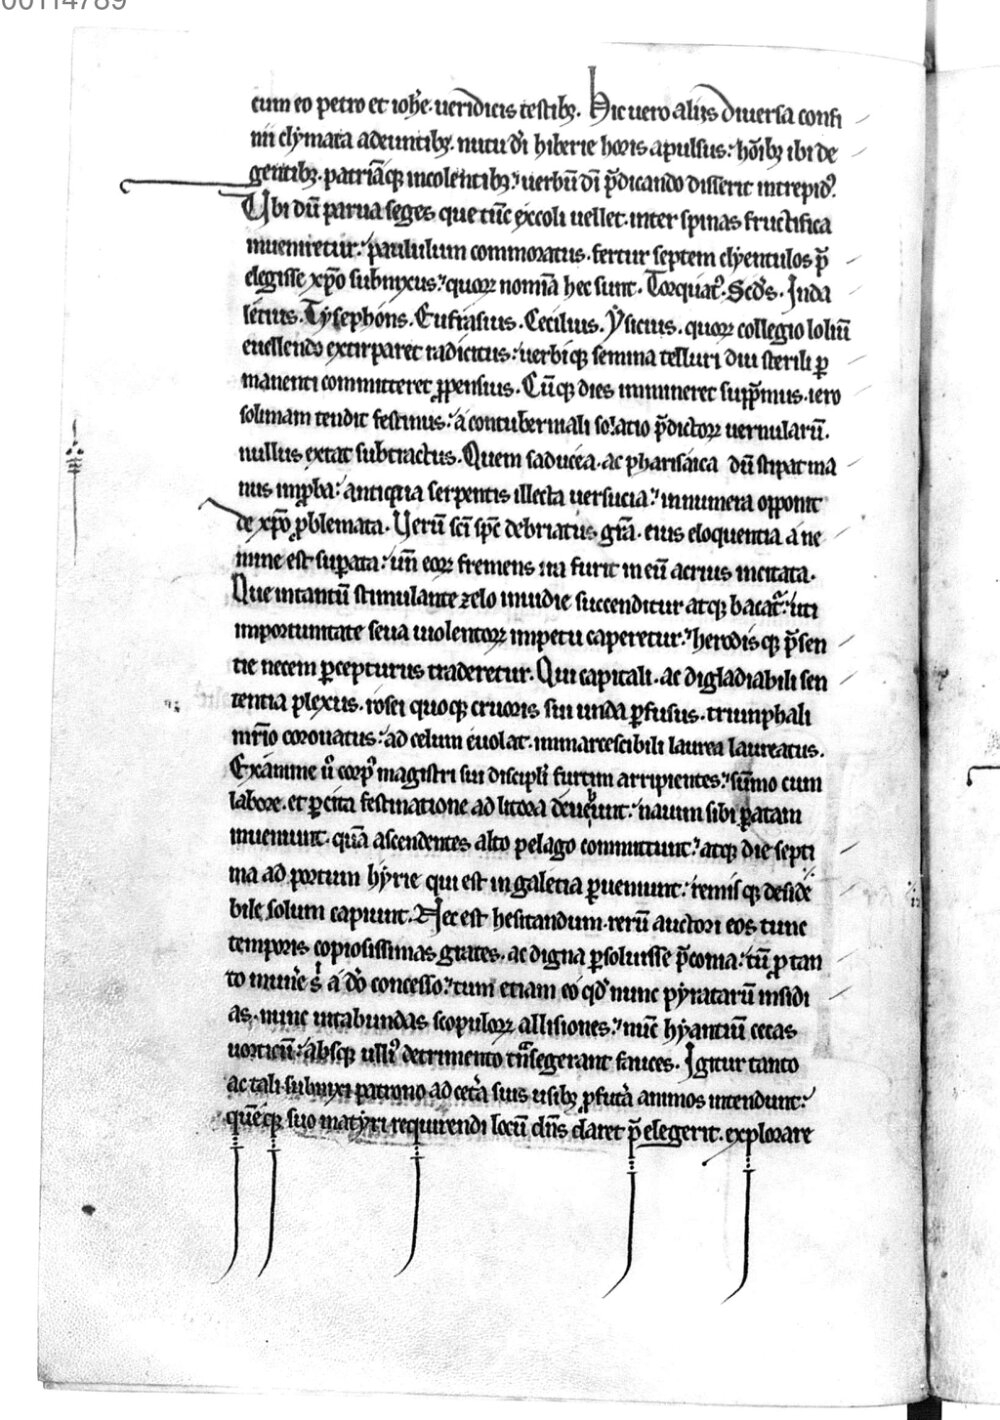 00114789
cum eo petro et ioh̄e. ueridicis testibꝫ. Hic uero aliis diuersa confi
nii clymata adeuntibꝫ. nutu dī hiberie horis apulsus: hōibꝫ ibi de
gentibꝫ. patriāqꝫ incolentibꝫ: uerbū dī p̄dicando disserit intrepidꝰ.
Ubi dū parua seges que tūc excoli uellet. inter spinas fructifica
inueniretur: paululum commoratus. fertur septem clyentulos p̄
elegisse xp̄o subnixus: quoꝝ nomīa hec sunt. Torquatꝰ. Secd̄s. Inda
letius. Tysephons. Eufrasius. Cecilius. Ysicius. quoꝝ collegio loliū
euellendo extirparet radicitus: uerbiqꝫ semina telluri diu sterili ꝑ
manenti committeret ꝓpensius. Cūqꝫ dies immineret supp̄mus. iero
solimam tendit festinus: a contubernali solatio p̄dictoꝝ uernularū.
nullus extat subtractus. Quem saducea. ac pharisaica dū stipat ma
nus imꝓba: antiqua serpentis illecta uersucia: innumera opponit
de xp̄o ꝓblemata. Uerū scī sp̄c debriatus grā. eius eloquentia a ne
mine est suꝑata: un̄ eoꝝ fremens ira furit in eū acrius incitata.
Que intantū stimulante zelo inuidie succenditur atqꝫ bacat̄: uti
importunitate seua uiolentoꝝ impetu caperetur: herodisqꝫ p̄sen
tie necem ꝑcepturus traderetur. Qui capitali. ac digladiabili sen
tentia plexus. rosei quoqꝫ cruoris sui unda ꝑfusus. triumphali
mr̄io coronatus: ad celum euolat. inmarcescibili laurea laureatus.
Exanime u̓ corpꝰ magistri sui discipli furtim arripientes: sūmo cum
labore. et ꝑcita festinatione ad litora deueꝶunt: nauim sibi ꝑatam
inueniunt. quā ascendentes alto pelago committunt: atqꝫ die septi
ma ad portum hyrie qui est in galetia ꝑueniunt: remisqꝫ deside
bile solum capiunt. Nec est hesitandum. rerū auctori eos tunc
temporis copiosissimas grates. ac digna ꝑsoluisse p̄conia: tū ꝓ tan
to mun̓e s̓ a dō concesso: tum etiam eo qd̓ nunc pyratarū insidi
as. nunc uitabundas scopuloꝝ allisiones: nūc hyantiū cecas
uorticū: absqꝫ ulliꝰ detrimento tn̄segerant fauces. Igitur tanto
ac tali subnixi patrono ad cet̓a suis usibꝫ ꝓfut̓a animos intendunt:
quēcqꝫ suo martyri requirendi locū dn̄s daret p̄elegerit. explorare